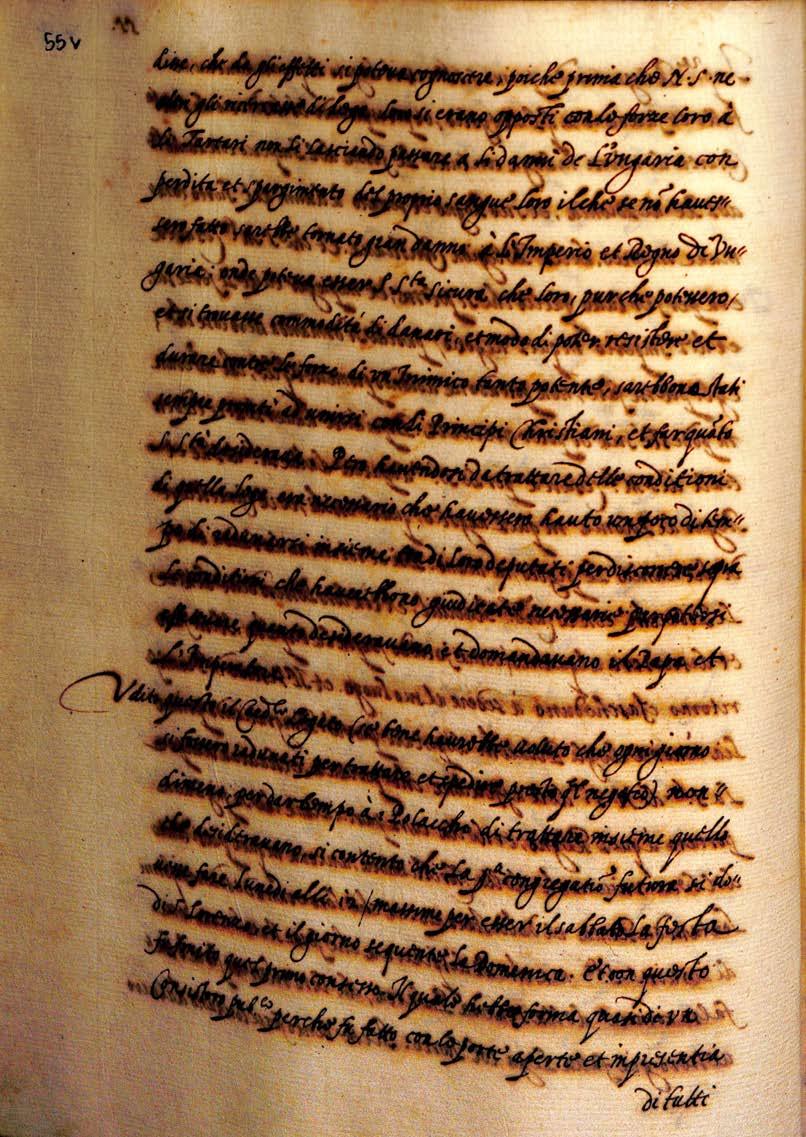 55v
dine, che da gli effetti si poteva cognoscere, poiche prima che N. S. ne
gli di lega loro si erano opposti con le forze loro à
li Tartari non li lasciando passare a li danni de L'Ungaria con
perdita et spargimento del proprio sangue loro, il che se nõ haves-"
sero fatto sarebbe tornato gran danno à l'Imperio et Regno di Vn-"
garia; onde poteva esser S. S.ta sicura che loro, pur che potessero,
et si trovasse commodità di danari, et modo di poter resistere et
durare contro le forze di un Inimico tanto potente, sarebbono stati
sempre pronti ad unirsi con li Principi Christiani, et far quãto
S. S.tà desiderava. Però havendosi da trattare delle conditioni
di quella lega era necessario che havessero hauto un poco di tem-"
po di adunarsi insieme con li loro deputati per discorrere sopra
le conditioni che haverebbono giudicate necessarie per
quanto desideravano, et domandavano il Papa et
l'Imperatore.
Udito questo il Card.le (se bene haverebbe voluto che ogni giorno
si fussero radunati per trattare, et spedire presto q̃l negotio) non "
dimeno per dar tempo à Polacchi di trattare insieme quello
che desideravano, si contentò che la p.a congregatiõ futura si do-"
vesse fare lunedi alli in / massime per esser il sabbato la festa
di S. Lorenzo, et il giorno sequente la Domenica. Et con questo
fu finito quel primo consesso. Il quale hebbe forma quasi di un
Consistoro pub.co perche fu fatto con le porte aperte et in presentia
di tutti